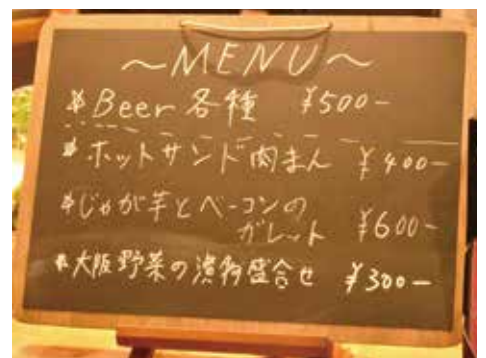 ～MENU～
*Beer 各種 ¥500-
*ホットサンド肉まん ¥400-
*じゃが芋とベーコンの
ガレット ¥600-
*大阪野菜の漬物盛合せ ¥300-